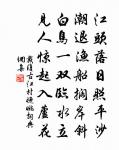 江頭落日照平沙
潮退漁船閣岸斜
白鳥一雙臨水立
見人驚起入蘆花
戴復古江村晚眺詞典
網集